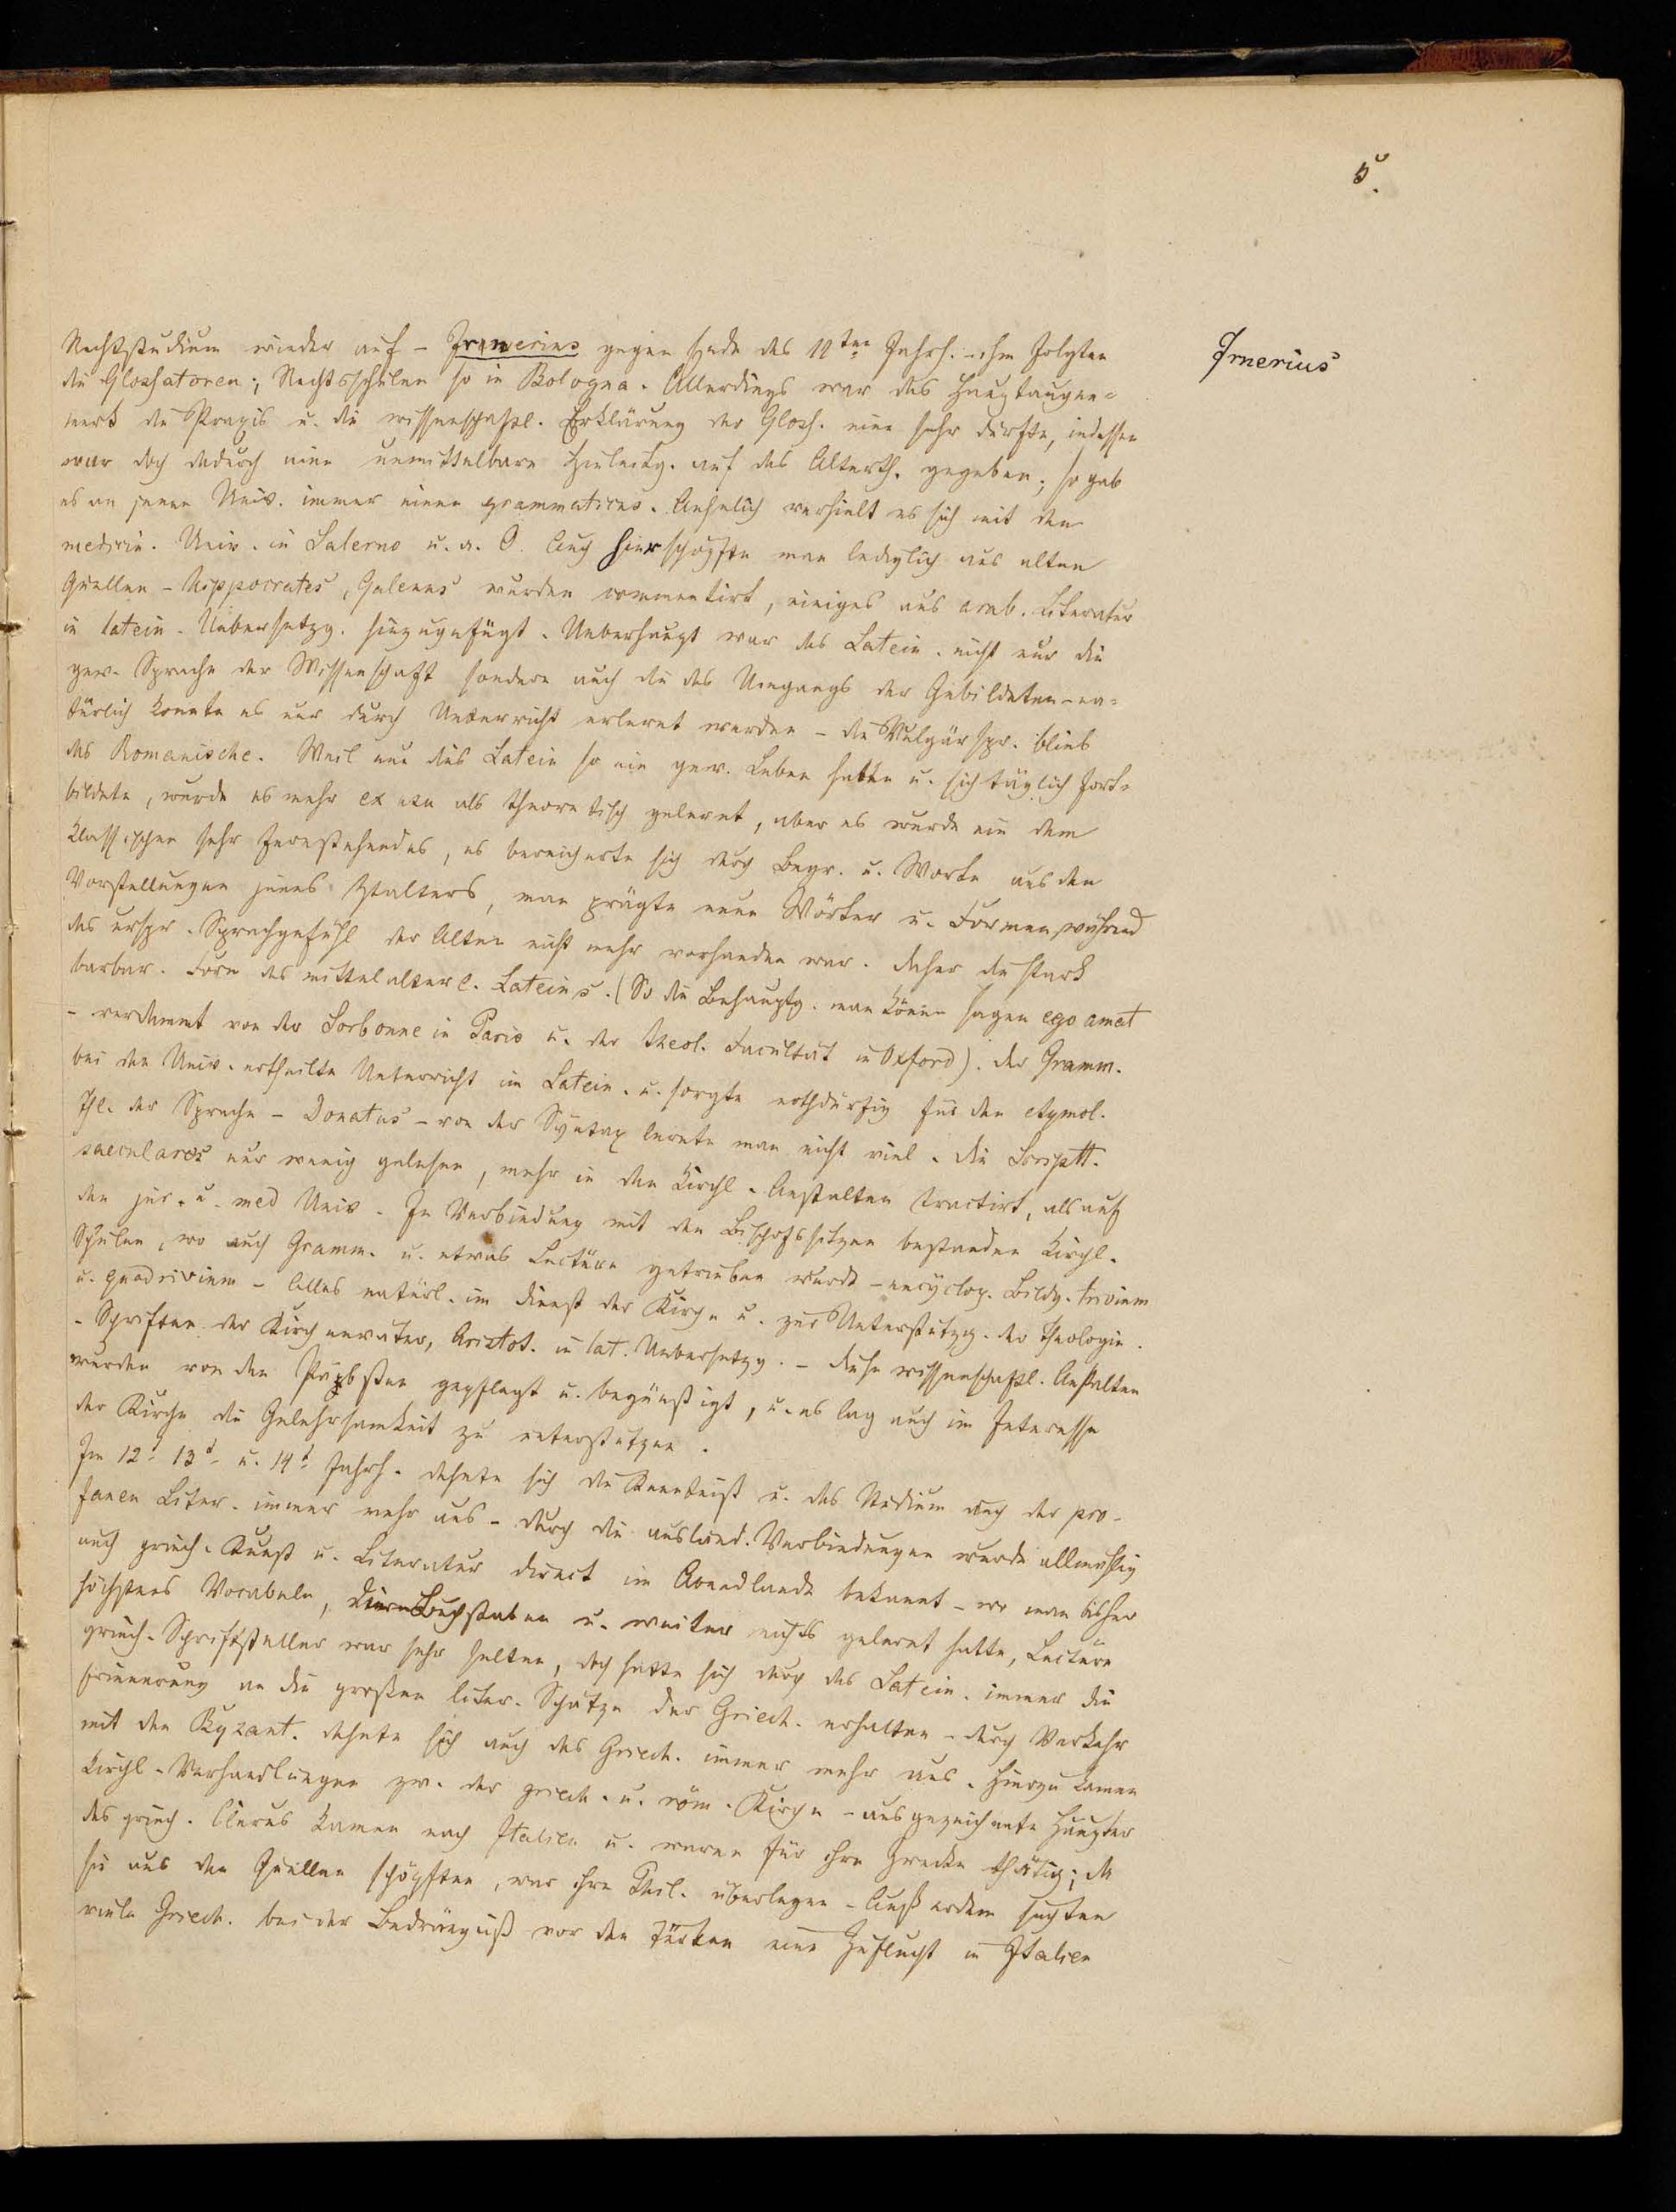 5.
Rechtsstudium wieder auf – Irnwerius gegen Ende des 11ten Jahrh. – ihm folgten
die Glossatoren; Rechtsschulen so in Bologna. Allerdings war das Hauptaugen=
merk die Praxis u. die wissenschaftl. Erklärung der Gloss. eine sehr dürfte, indessen
war doch dadurch eine unmittelbare Hinleitg. auf das Alterth. gegeben; so gab
es an jenen Univ. immer einen grammaticus. Aehnlich verhielt es sich mit den
medicin. Univ. in Salerno u. a. O. Auch hier schöpfte man lediglich aus alten
Quellen – Hippocrates, Galenus wurden commentirt, einiges aus arab. Literatur
in latein. Uebersetzg. hinzugefügt. Ueberhaupt war das Latein. nicht nur die
gew. Sprache der Wissenschaft sondern auch die des Umgangs der Gebildeten – na=
türlich konnte es nur durch Unterricht erlernt werden – die Vulgärspr. blieb
das Romanische. Weil nun dies Latein so ein gew. Leben hatte u. sich täglich fort=
bildete, wurde es mehr ex usu als theoretisch gelernt, aber es wurde ein dem
Klassischen sehr fernstehendes, es bereicherte sich durch Begr. u. Worte aus den
Vorstellungen jenes Ztalters, man prägte neue Wörter u. Formen, während
das urspr. Sprachgefühl der Alten nicht mehr vorhanden war. Daher die stark
barbar. Form des mittelalterl. Lateins. (So die Behauptg. man könne sagen ego amat
– verdammt von der Sorbonne in Paris u. der theol. Facultät in Oxford). Der Gramm.
bei den Univ. ertheilte Unterricht im Latein. u. sorgte nothdürftig für den etymol.
Thl. der Sprache – Donatus – von der Syntax lernte man nicht viel. Die Scriptt.
saeculares nur wenig gelesen, mehr in den Kirchl. Anstalten tractirt, als auf
den jur. u. med Univ. In Verbindung mit den Bischofssitzen bestanden Kirchl.
Schulen, wo auch Gramm. u. etwas Lectüre getrieben wurde – encyclop. Bildg. trivium
u. quadrivium – Alles natürl. im Dienst der Kirche u. zur Unterstützg. der Theologie.
– Schriften der Kirchenväter, Aristot. in lat. Uebersetzg. – Diese wissenschaftl. Anstalten
wurden von den Päpsten gepflegt u. begünstigt, u. es lag auch im Interesse
der Kirche die Gelehrsamkeit zu unterstützen.
Im 12t 13t u. 14t Jahrh. dehnte sich die Kenntniß u. das Studium auch der pro-
fanen Liter. immer mehr aus – durch die ausländ. Verbindungen wurde allmählig
auch griech. Kunst u. Literatur direct im Abendlande bekannt – wo man bisher
höchstens Vocabeln, Buchstaben u. weiter nichts gelernt hatte, Lectüre
griech. Schriftsteller war sehr selten, doch hatte sich durch das Latein. immer die
Erinnerung an die großen liter. Schätze der Griech. erhalten – durch Verkehr
mit den Byzant. dehnte sich auch das Griech. immer mehr aus. Hierzu kamen
kirchl. Verhandlungen zw. der griech. u. röm. Kirche – ausgezeichnete Häupter
des griech. Clerus kamen nach Italien u. waren für ihre Zwecke thätig; da
sie aus den Quellen schöpften, war ihre Phil. überlegen – Außerdem suchten
viele Griech. bei der Bedrängniß vor den Türken eine Zuflucht in Italien
Irnerius